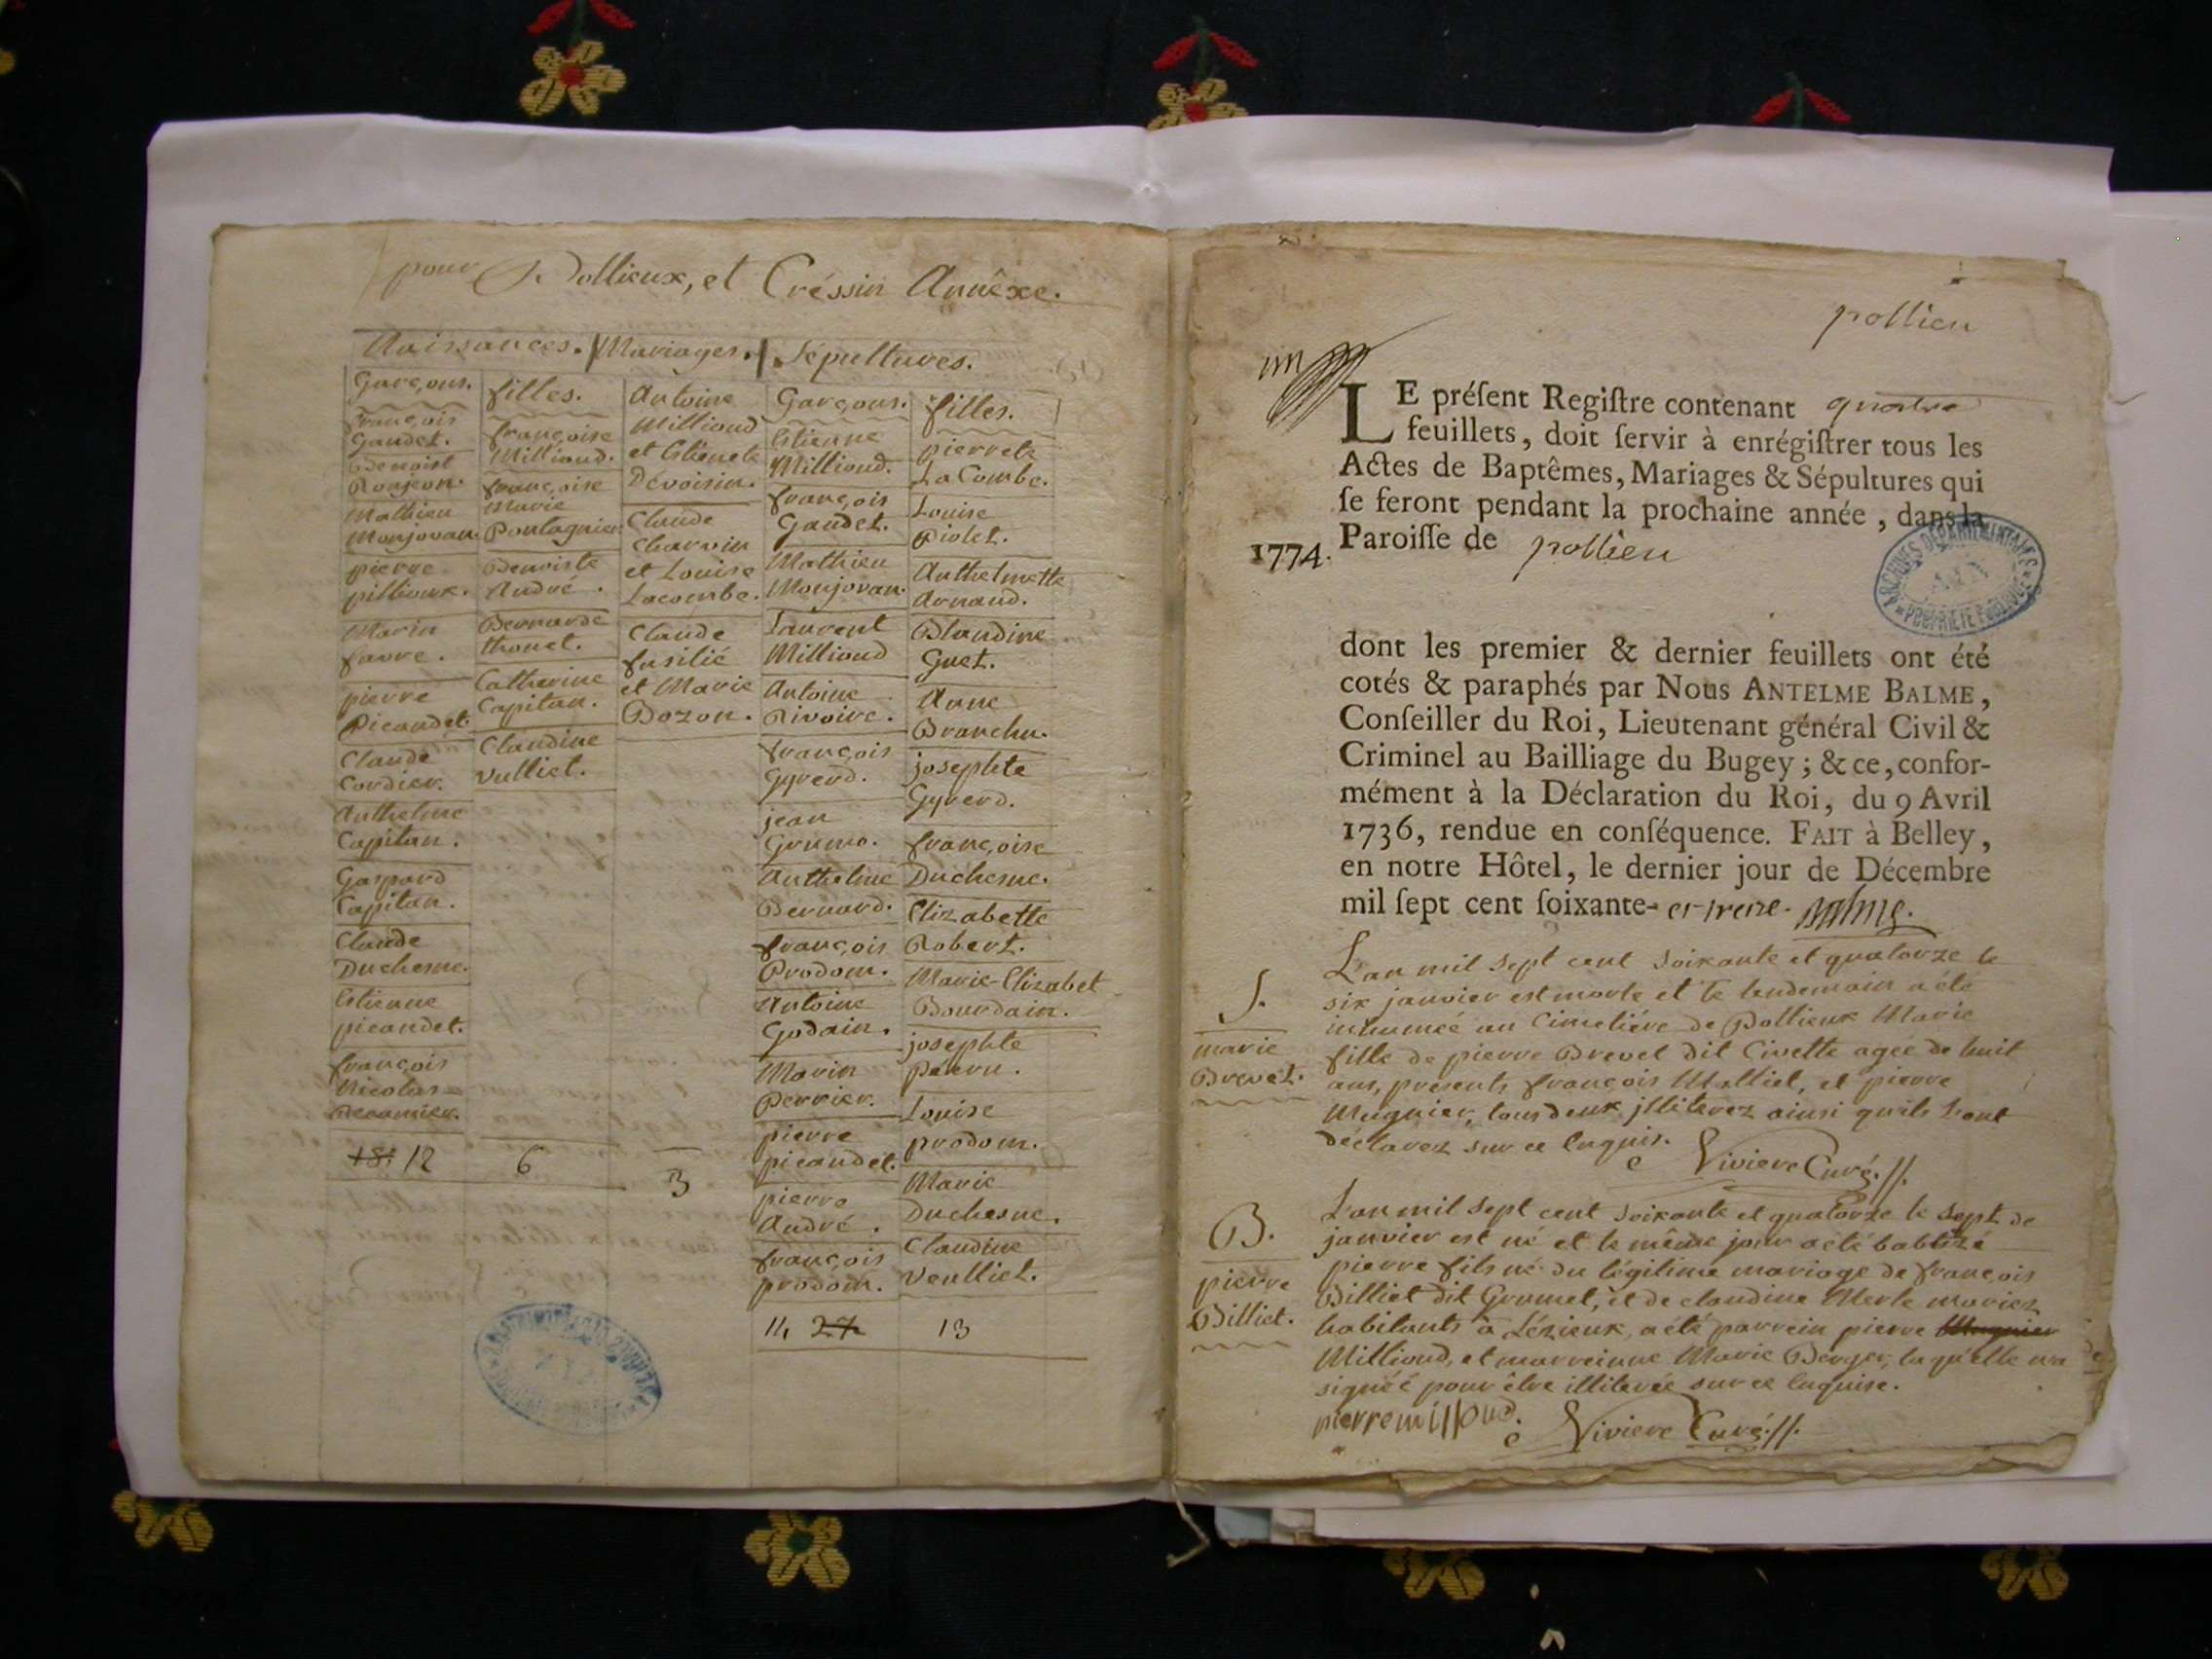 pour Pollieux, et Créssin Annêxe.
Naissances. Mariages. Sépultures.
Garçons.
françois
Gaudet.
Benoist
Ronjeon.
Mathieu
Monjovan.
pierre
pillioux.
Marin
favre.
pierre
Picaudet.
Claude
Cordier.
Anthelme
Capitan.
Gaspard
Capitan.
Claude
Duchesne.
Etienne
picaudet.
françois
Nicolas
12
filles.
françoise
Millioud.
françoise
Marie
Poulagnier.
Benoiste
André.
Bernarde
thonet.
Catherine
Capitan.
Claudine
Vulliet.
6
Antoine
Millioud
et Etienete
Dévoisin.
Claude
Charvin
et Louise
Lacombe.
Claude
fusilié
et Marie
Bozon.
3
Garçons.
Etienne
Millioud.
françois
Gaudet.
Mathieu
Monjovan.
Laurent
Millioud
Antoine
Rivoire.
françois
Gyrerd.
jean
Grumo.
Anthelme
Bernard.
françois
Prodom.
Antoine
Godain.
Marin
Perrier.
pierre
picaudet.
pierre
André.
françois
prodom.
11, 27
filles.
pierrete
LaCombe.
Louise
Piolet.
Anthelmette
Arnaud.
Blandine
Guet.
Anne
Branchu.
josephte
Gyrerd.
françoise
Duchesne.
Elizabette
Robert.
Marie-Elizabet
Bourdain.
josephte
Louise
prodom.
Marie
Duchesne.
Claudine
Veulliet.
13
pollieu
LE préſent Regiſtre contenant quatre
feuillets, doit ſervir à enrégiſtrer tous les
Actes de Baptêmes, Mariages & Sépultures qui
ſe feront pendant la prochaine année, dans la
1774. Paroiſſe de pollieu
ARCHIVES DÉPARTEMENTALES
PROPRIÉTÉ PUBLIQUE
dont les premier & dernier feuillets ont été
cotés & paraphés par Nous ANTELME BALME,
Conſeiller du Roi, Lieutenant général Civil &
Criminel au Bailliage du Bugey; & ce, confor-
mément à la Déclaration du Roi, du 9 Avril
1736, rendue en conſéquence. FAIT à Belley,
en notre Hôtel, le dernier jour de Décembre
mil ſept cent ſoixante- et treize. Balme.
S.
marie
Brevet.
L'an mil sept cent soixante et quatorze le
six janvier est morte et le lendemain a été
inhumée au Cimetiére de Pollieux Marie
fille de pierre Brevet dit Civette agée de huit
ans, présents françois Malliet, et pierre
Mugnier, tous deux illiterez ainsi qu'ils l'ont
déclarez sur ce Enquis.
Riviere Curé.
B.
pierre
Billiet.
L'an mil sept cent soixante et quatorze le sept de
janvier est né et le même jour a été babtizé
pierre fils né du légitime mariage de françois
Billiet dit Grumet, et de claudine Merle mariez
habitants à Lézieux, a été parrein pierre Mugnier
Millioud, et marreinne Marie Berger, laquelle n'a
signéé pour être illiterée sur ce Enquise.
pierre millioud. Riviere Curé.